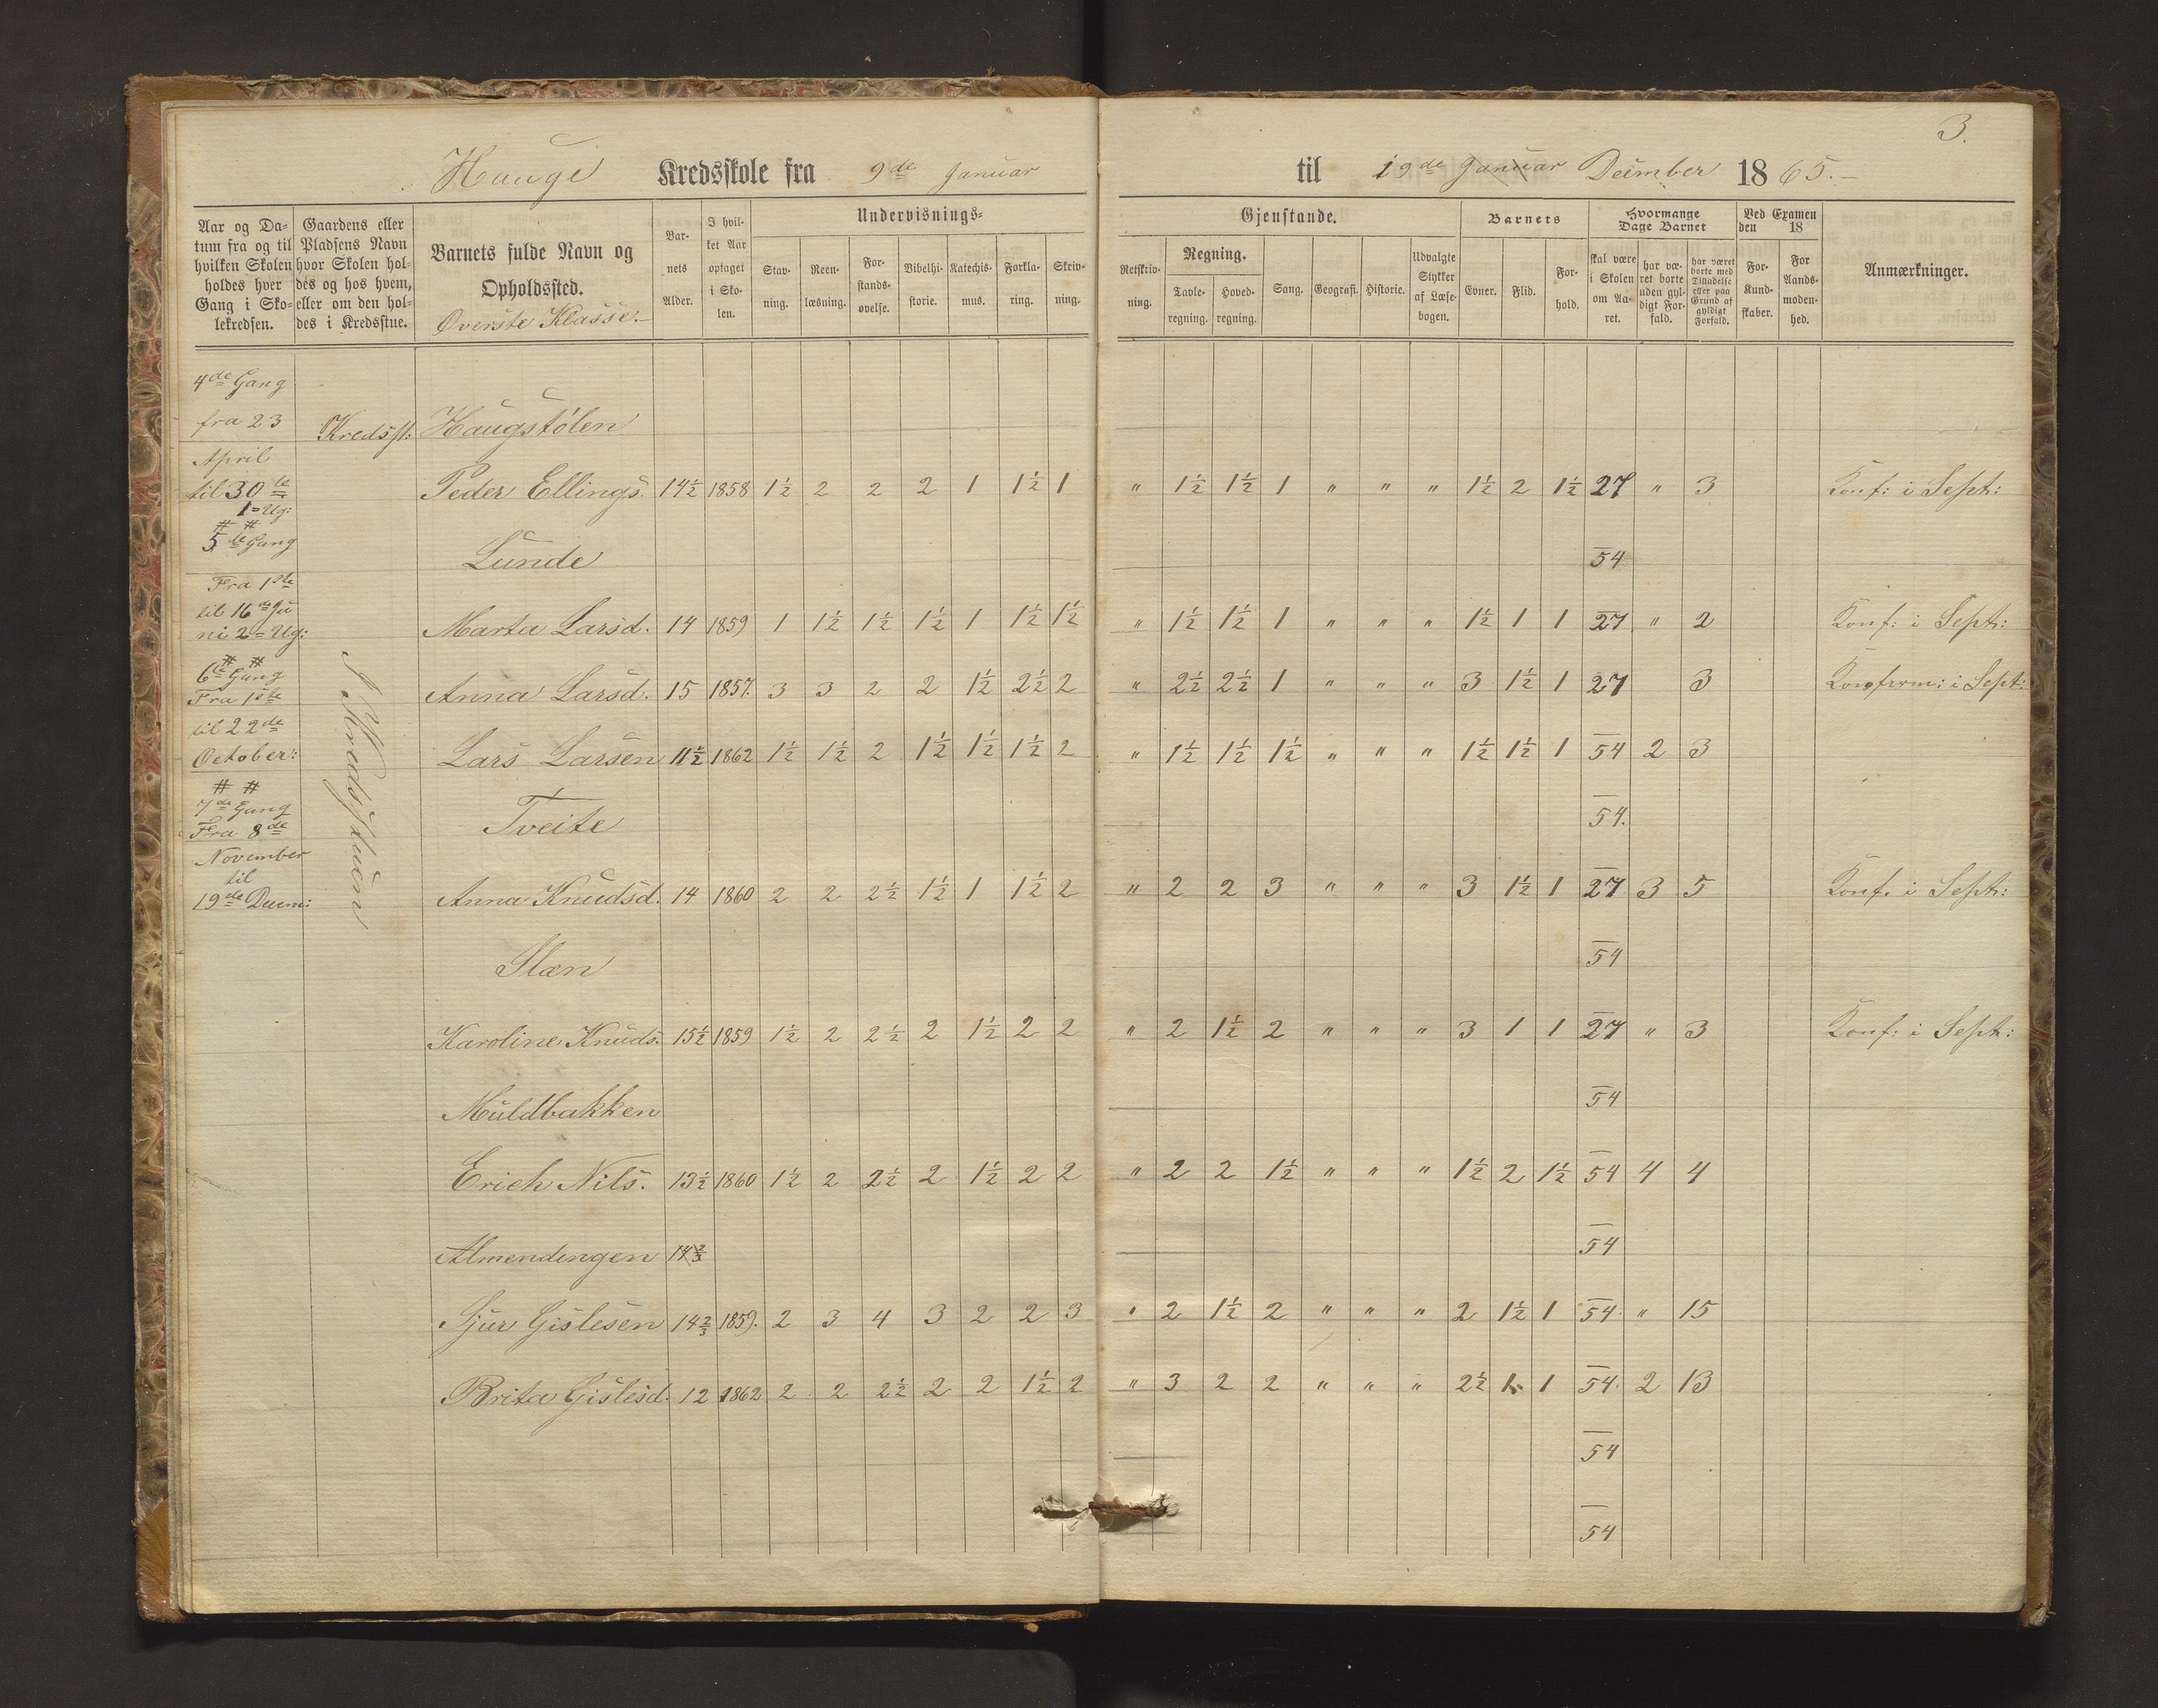 3.
Hauge Kredsskole fra 9de Januar til 19de Januar Decimber 1865.-
Aar og Datum fra og til hvilken Skolen holdes hver Gang i Skolekredsen.
Gaardens eller Pladsens Navn hvor Skolen holdes og hos hvem, eller om den holdes i Kredsstue.
Barnets fulde Navn og Opholdssted.
Øverste Klasse.-
Barnets Alder.
I hvilket Aar optaget i Skolen.
Undervisnings- Gjenstande.
Stavning. Reenlæsning. Forstandsøvelse. Bibelhistorie. Katechismus. Forklaring. Skrivning.
Retskrivning. Regning. Tavleregning. Hovedregning. Sang. Geografi. Historie. Udvalgte Stykker af Læsebogen.
Barnets Evner. Flid. Forhold.
Hvormange Dage Barnet
skal være i Skolen om Aaret. har været borte uden gyldigt Forfald. har været borte med Tilladelse eller paa Grund af gyldigt Forfald.
Ved Examen den 18
For Kundskaber. For Aandsmodenhed.
Anmærkninger.
4de Gang
fra 23
April
til 30te
1=Ug:
# #
5te Gang
Fra 1ste
til 16de Ju
ni 2=Ug:
# #
6te Gang
Fra 1ste
til 22de
October:
# #
7de Gang
Fra 8de
November
til
19de Decem:
Kredsst:
I Kredsstuen
Haugstølen
Peder Ellings. 14½ 1858 1½ 2 2 2 1 1½ 1 " 1½ 1½ 1 " " " 1½ 2 1½ 27 " 3 Konf: i Sept:
Lunde 54
Marta Larsd. 14 1859 1 1½ 1½ 1½ 1 1½ 1½ " 1½ 1½ 1 " " " 1½ 1 1 27 " 2 Konf: i Sept:
Anna Larsd. 15 1857. 3 3 2 2 1½ 2½ 2 " 2½ 2½ 1 " " " 3 1½ 1 27 3 i Sept:
Lars Larsen 11½ 1862 1½ 1½ 2 1½ 1½ 1½ 2 " 1½ 1½ 1½ " " " 1½ 1½ 1 54 2 3
Tveite 54.
Anna Knudsd. 14 1860 2 2 2½ 1½ 1 1½ 2 " 2 2 3 " " " 3 1½ 1 27 3 5 Konf. i Sept:
Slæn 54
Karoline Knuds. 15½ 1859 1½ 2 2½ 2 1½ 2 2 " 2 1½ 2 " " " 3 1 1 27 " 3 Konf: i Sept:
Muldbakken 54
Erich Nils. 13½ 1860 1½ 2 2½ 2 1½ 2 2 " 2 2 1½ " " " 1½ 2 1½ 54 4 4
Almendingen 14⅔ 54
Sjur Gislesen 14⅔ 1859. 2 3 4 3 2 2 3 " 2 1½ 2 " " " 2 1½ 1 54. " 15
Brita Gislesd. 12 1862 2 2 2½ 2 2 1½ 2 " 3 2 2 " " " 2½ 1. 1 54. 2 13
54
54